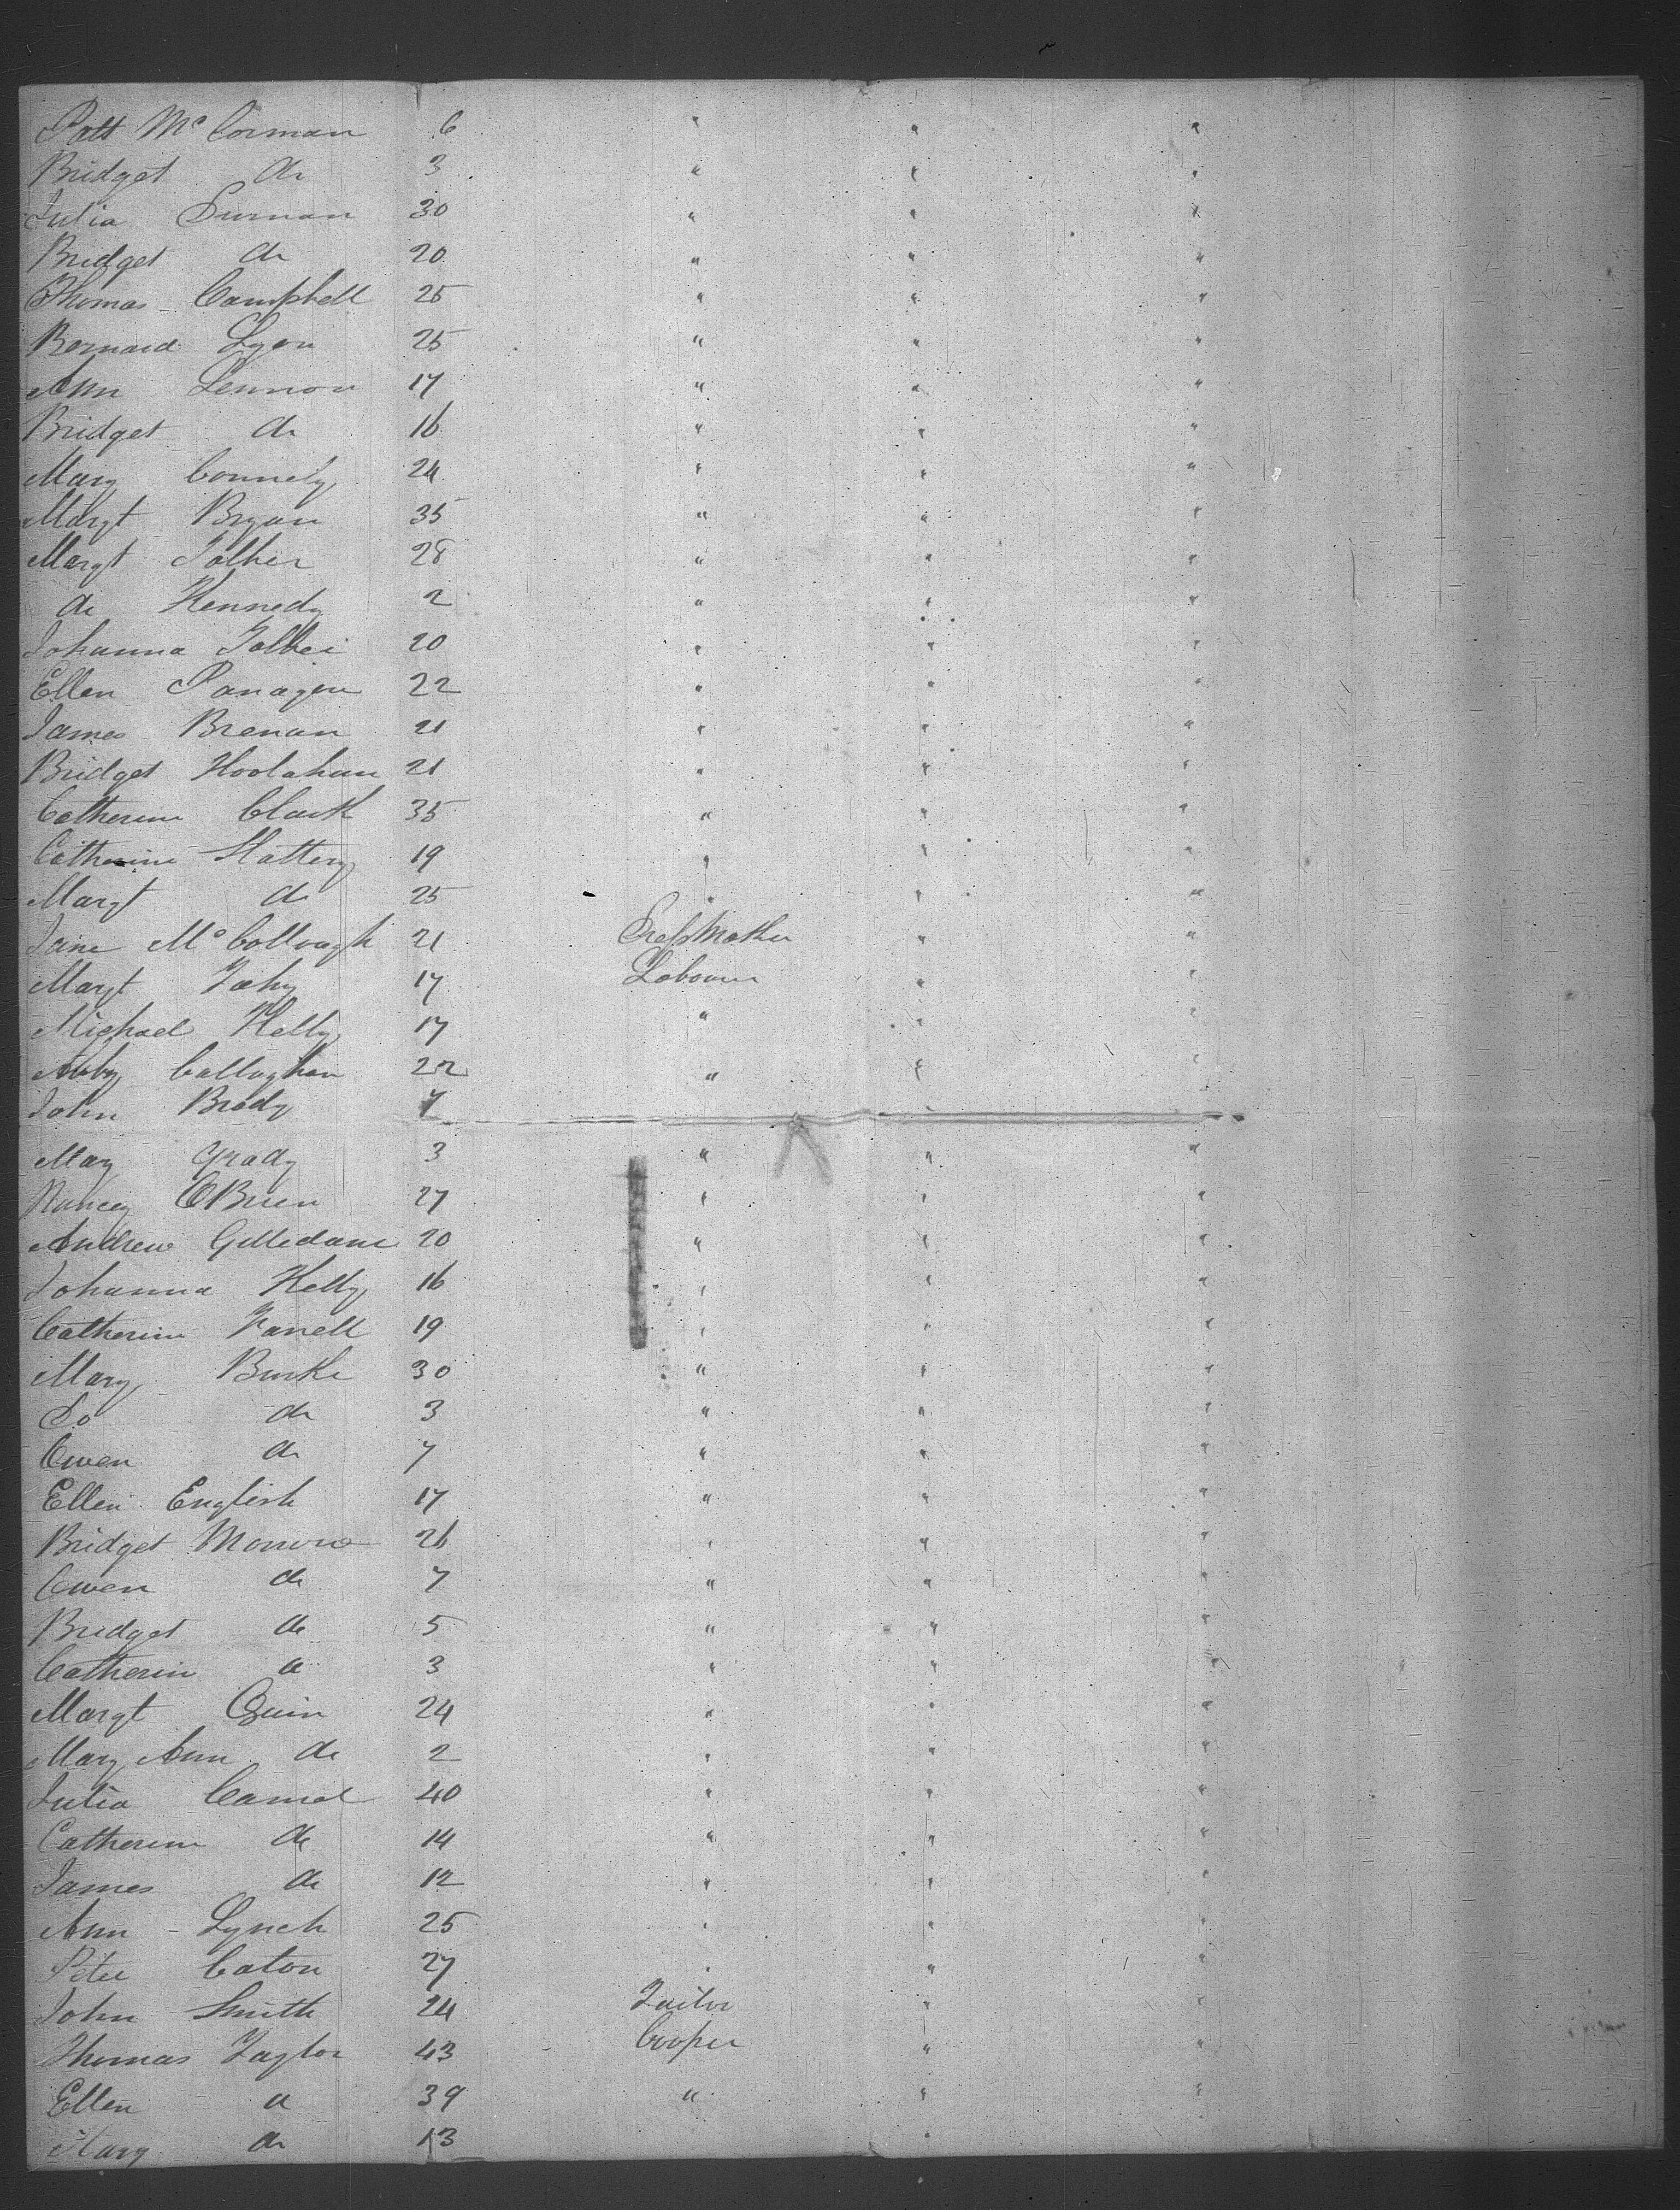 Patt McCorman 6 " " "
Bridget do 3 " " "
Julia Surman 30 " " "
Bridget do 20 " " "
Thomas Campbell 25 " " "
Bernard Lyon 25 " " "
Ann Lennon 17 " " "
Bridget do 16 " " "
Mary Connely 24 " " "
Margt Bryan 35 " " "
Margt 28 " " "
do Kennedy 2 " " "
Johanna 20 " " "
Ellen 22 " " "
James Brenan 21 " " "
Bridget Hoolahan 21 " " "
Catherine Clark 35 " " "
Catherine Slattery 19 " " "
Margt do 25 " " "
Jane McCollough 21 DressMaker " "
Margt Fahy 17 Labourer " "
Michael Kelly 17 " " "
Abby Callaghan 22 " " "
John Brody 7
Mary Grady 3 " " "
Nancy OBrien 27 " " "
Andrew Gilledane 20 " " "
Johanna Kelly 16 " " "
Catherine Farrell 19 " " "
Mary Burke 30 " " "
Do do 3 " " "
Owen do 7 " " "
Ellen English 17 " " "
Bridget 26 " " "
Owen do 7 " " "
Bridget do 5 " " "
Catherin do 3 " " "
Margt Quin 24 " " "
Mary Ann do 2 " " "
Julia Camel 40 " " "
Catherine do 14 " " "
James do 12 " " "
Ann - Lynch 25 " " "
Peter Caton 27 " " "
John Smith 24 Tailor " "
Thomas Taylor 43 Cooper " "
Ellen do 39 " " "
Mary do 13 "